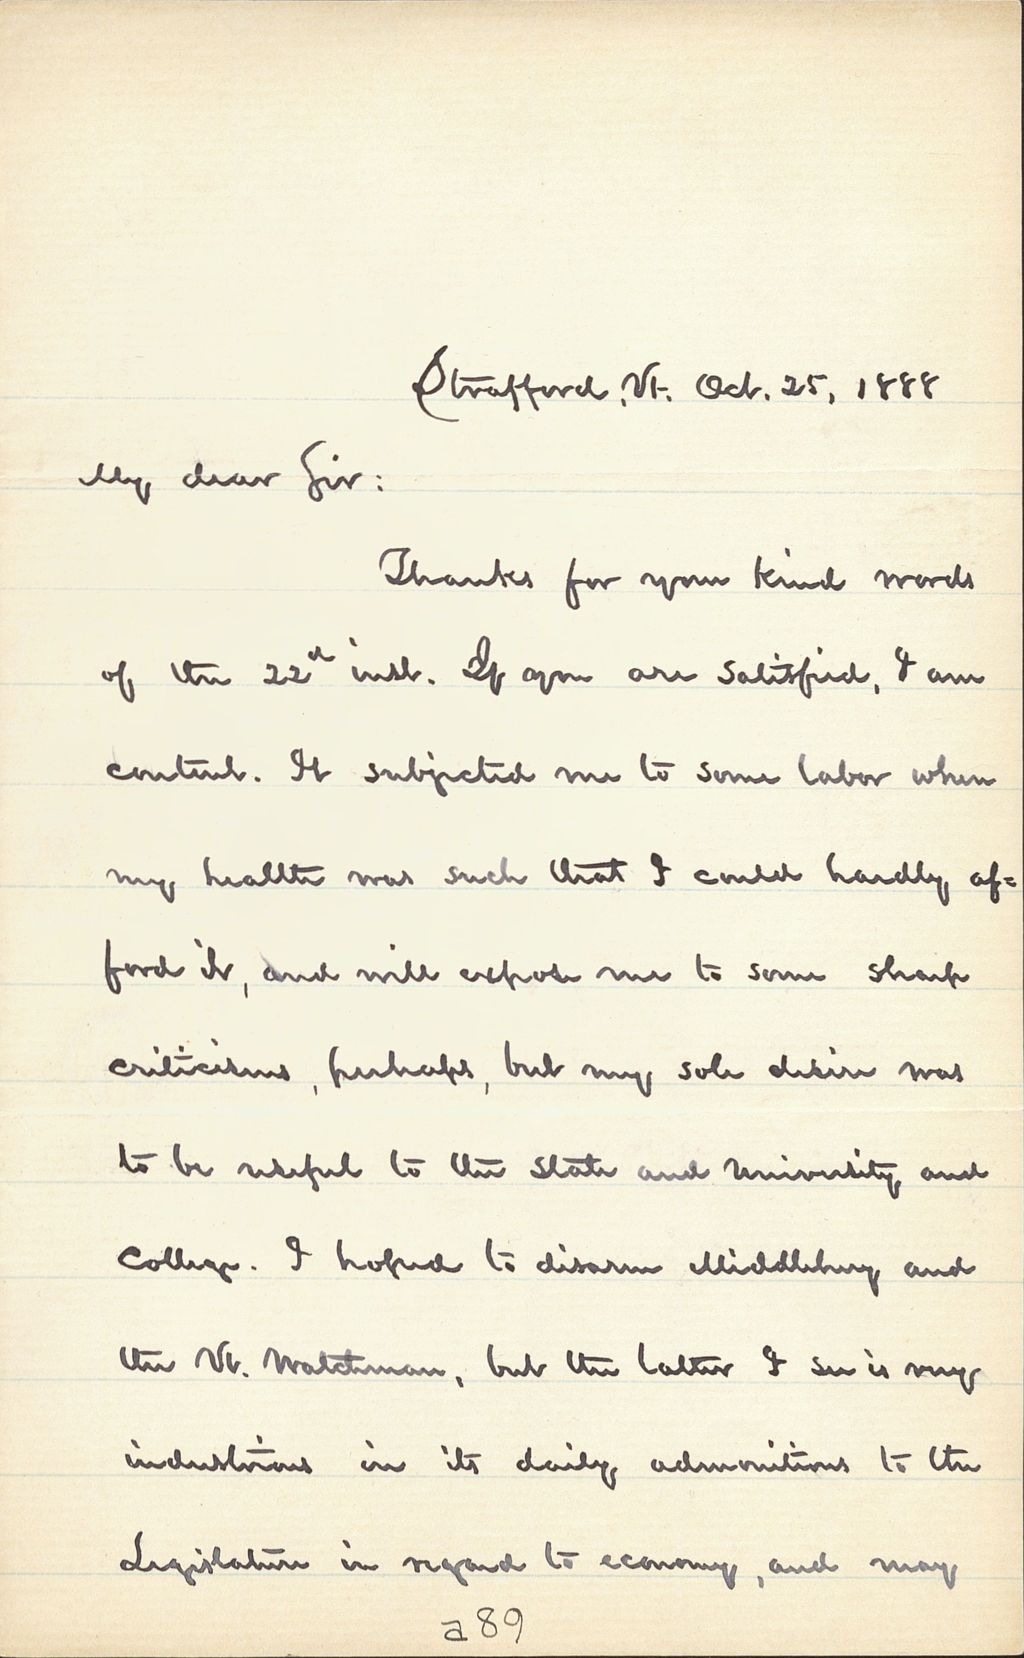 Strafford, Vt. Oct. 25, 1888
My dear Sir:
Thanks for your kind words
of the 22d inst. If you are satisfied, I am
content. It subjected me to some labor when
my health was such that I could hardly af=
ford it, and will expose me to some sharp
criticisms, perhaps, but my sole desire was
to be useful to the State and University and
College. I hoped to disarm Middlebury and
the Vt. Watchman, but the latter I see is very
industrious in its daily admonitions to the
Legislature in regard to economy, and may
a89